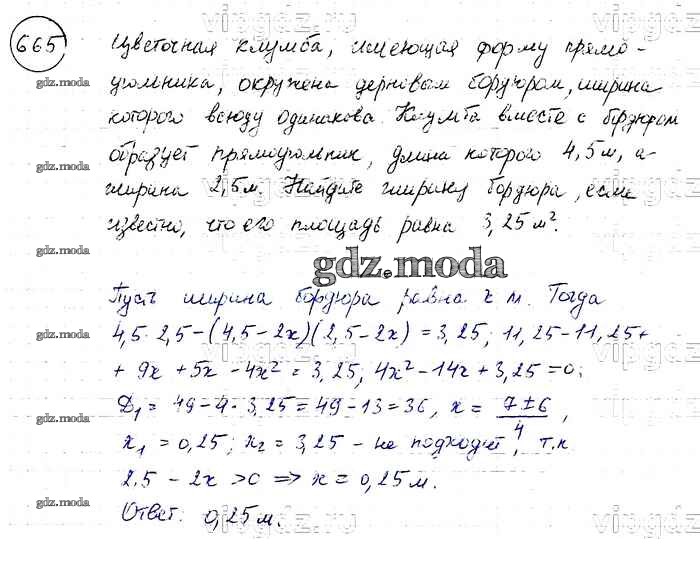 665
Цветочная клумба, имеющая форму прямо-
угольника, окружена дерновым бордюром, ширина
которого всюду одинакова. Клумба вместе с бордюром
образует прямоугольник, длина которого 4,5 м, а
ширина 2,5 м. Найдите ширину бордюра, если
известно, что его площадь равна 3,25 м².
gdz.moda
Пусть ширина бордюра равна x м. Тогда
4,5 · 2,5 – (4,5 – 2x)(2,5 – 2x) = 3,25; 11,25 – 11,25 +
+ 9x + 5x – 4x² = 3,25; 4x² – 14x + 3,25 = 0;
D₁ = 49 – 4 · 3,25 = 49 – 13 = 36, x = (7 ± 6)/4,
x₁ = 0,25; x₂ = 3,25 – не подходит, т.к
2,5 – 2x > 0 => x = 0,25 м.
Ответ: 0,25 м.
gdz.moda
gdz.moda
gdz.moda
gdz.moda
gdz.moda
gdz.moda
vipgdz.ru
vipgdz.ru
vipgdz.ru
vipgdz.ru
vipgdz.ru
vipgdz.ru